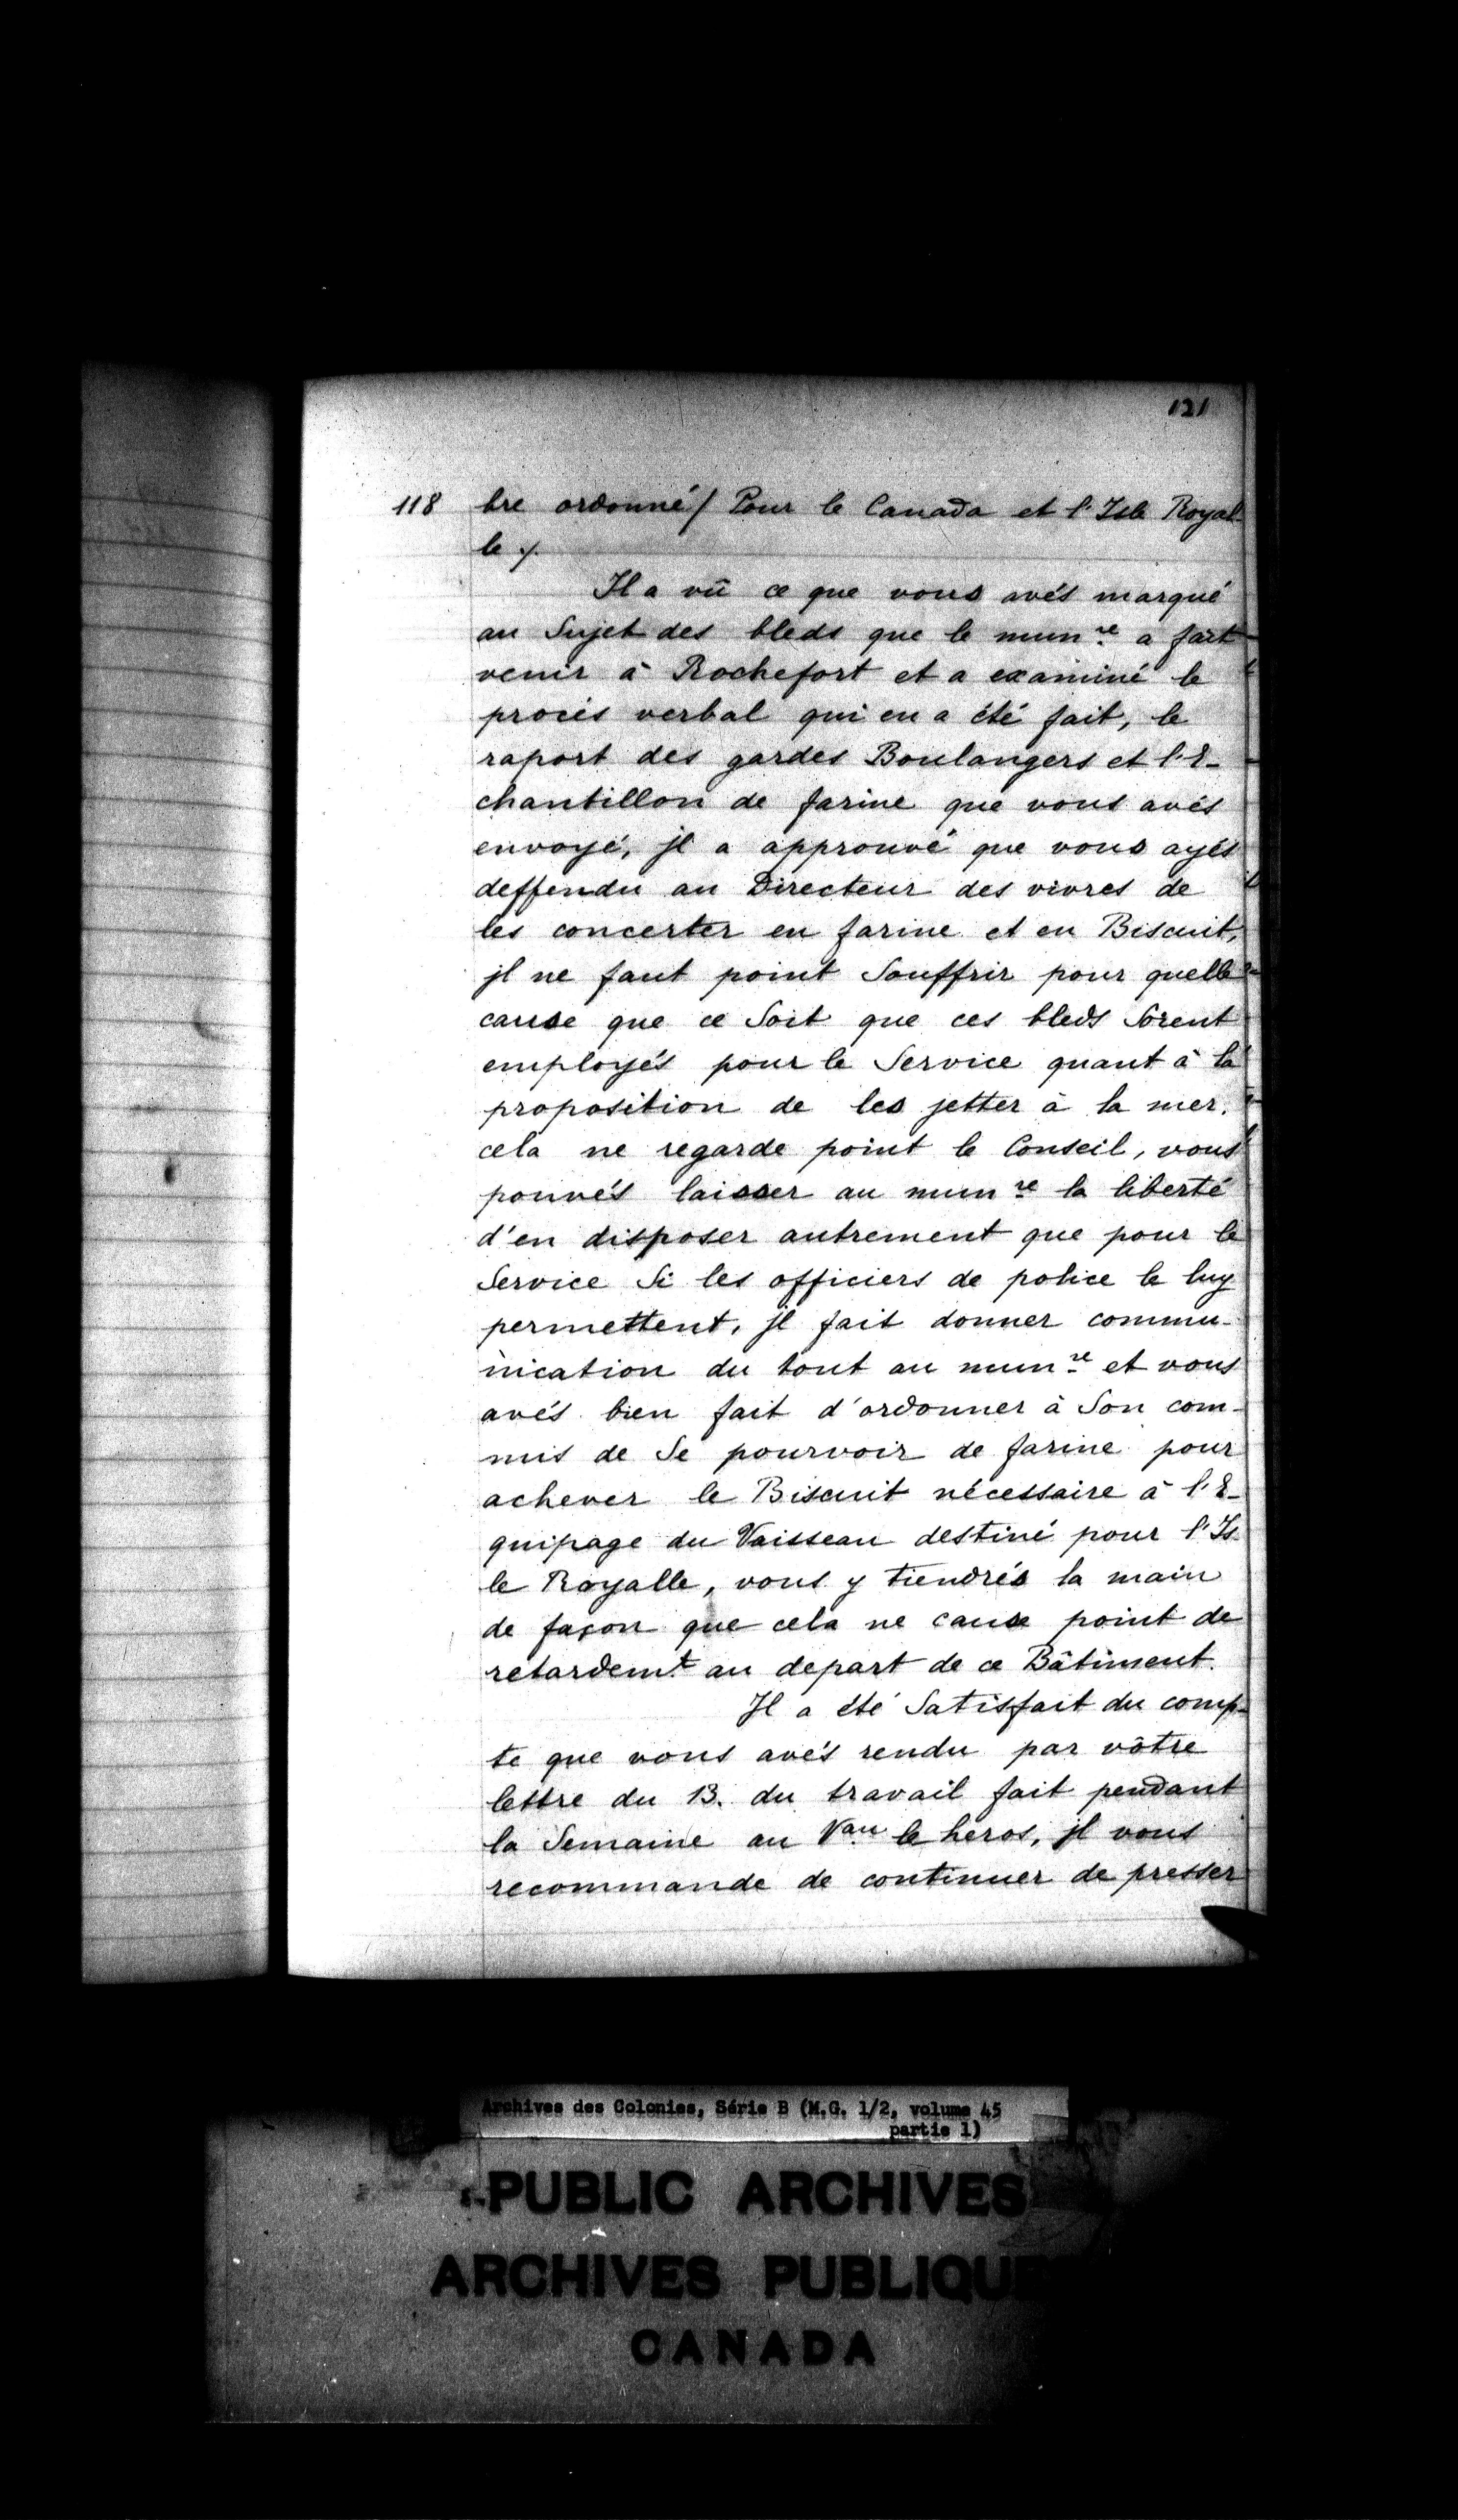 121
118 bre ordonné / Pour le Canada et l'Isle Royal
le ./.
Il a vû ce que vous avés marqué
au Sujet des bleds que le mun.re a fait
venir à Rochefort et a examiné le
procés verbal qui en a été fait, le
raport des gardes Boulangers et l'E-
chantillon de farine que vous avés
envoyé, jl a approuvé que vous ayés
deffendu au Directeur des vivres de
les concerter en farine et en Biscuit,
jl ne faut point Souffrir pour quelle
cause que ce Soit que ces bleds Soient
employés pour le Service quant à la
proposition de les jetter à la mer,
cela ne regarde point le Conseil, vous
pouvés laisser au mun.re la liberté
d'en disposer autrement que pour le
Service Si les officiers de police le luy
permettent, jl fait donner commu-
nication du tout au mun.re et vous
avés bien fait d'ordonner à Son com-
mis de Se pourvoir de farine pour
achever le Biscuit nécessaire à l'E-
quipage du Vaisseau destiné pour l'Is
le Royalle, vous y tiendrés la main
de façon que cela ne cause point de
retardem.t au depart de ce Bâtiment.
Jl a été Satisfait du comp-
te que vous avés rendu par vôtre
lettre du 13. du travail fait pendant
la Semaine au Vau le heros, jl vous
recommande de continuer de presser
Archives des Colonies, Série B (M.G. 1/2, volume 45
partie 1)
PUBLIC ARCHIVES
ARCHIVES PUBLIQUE
CANADA